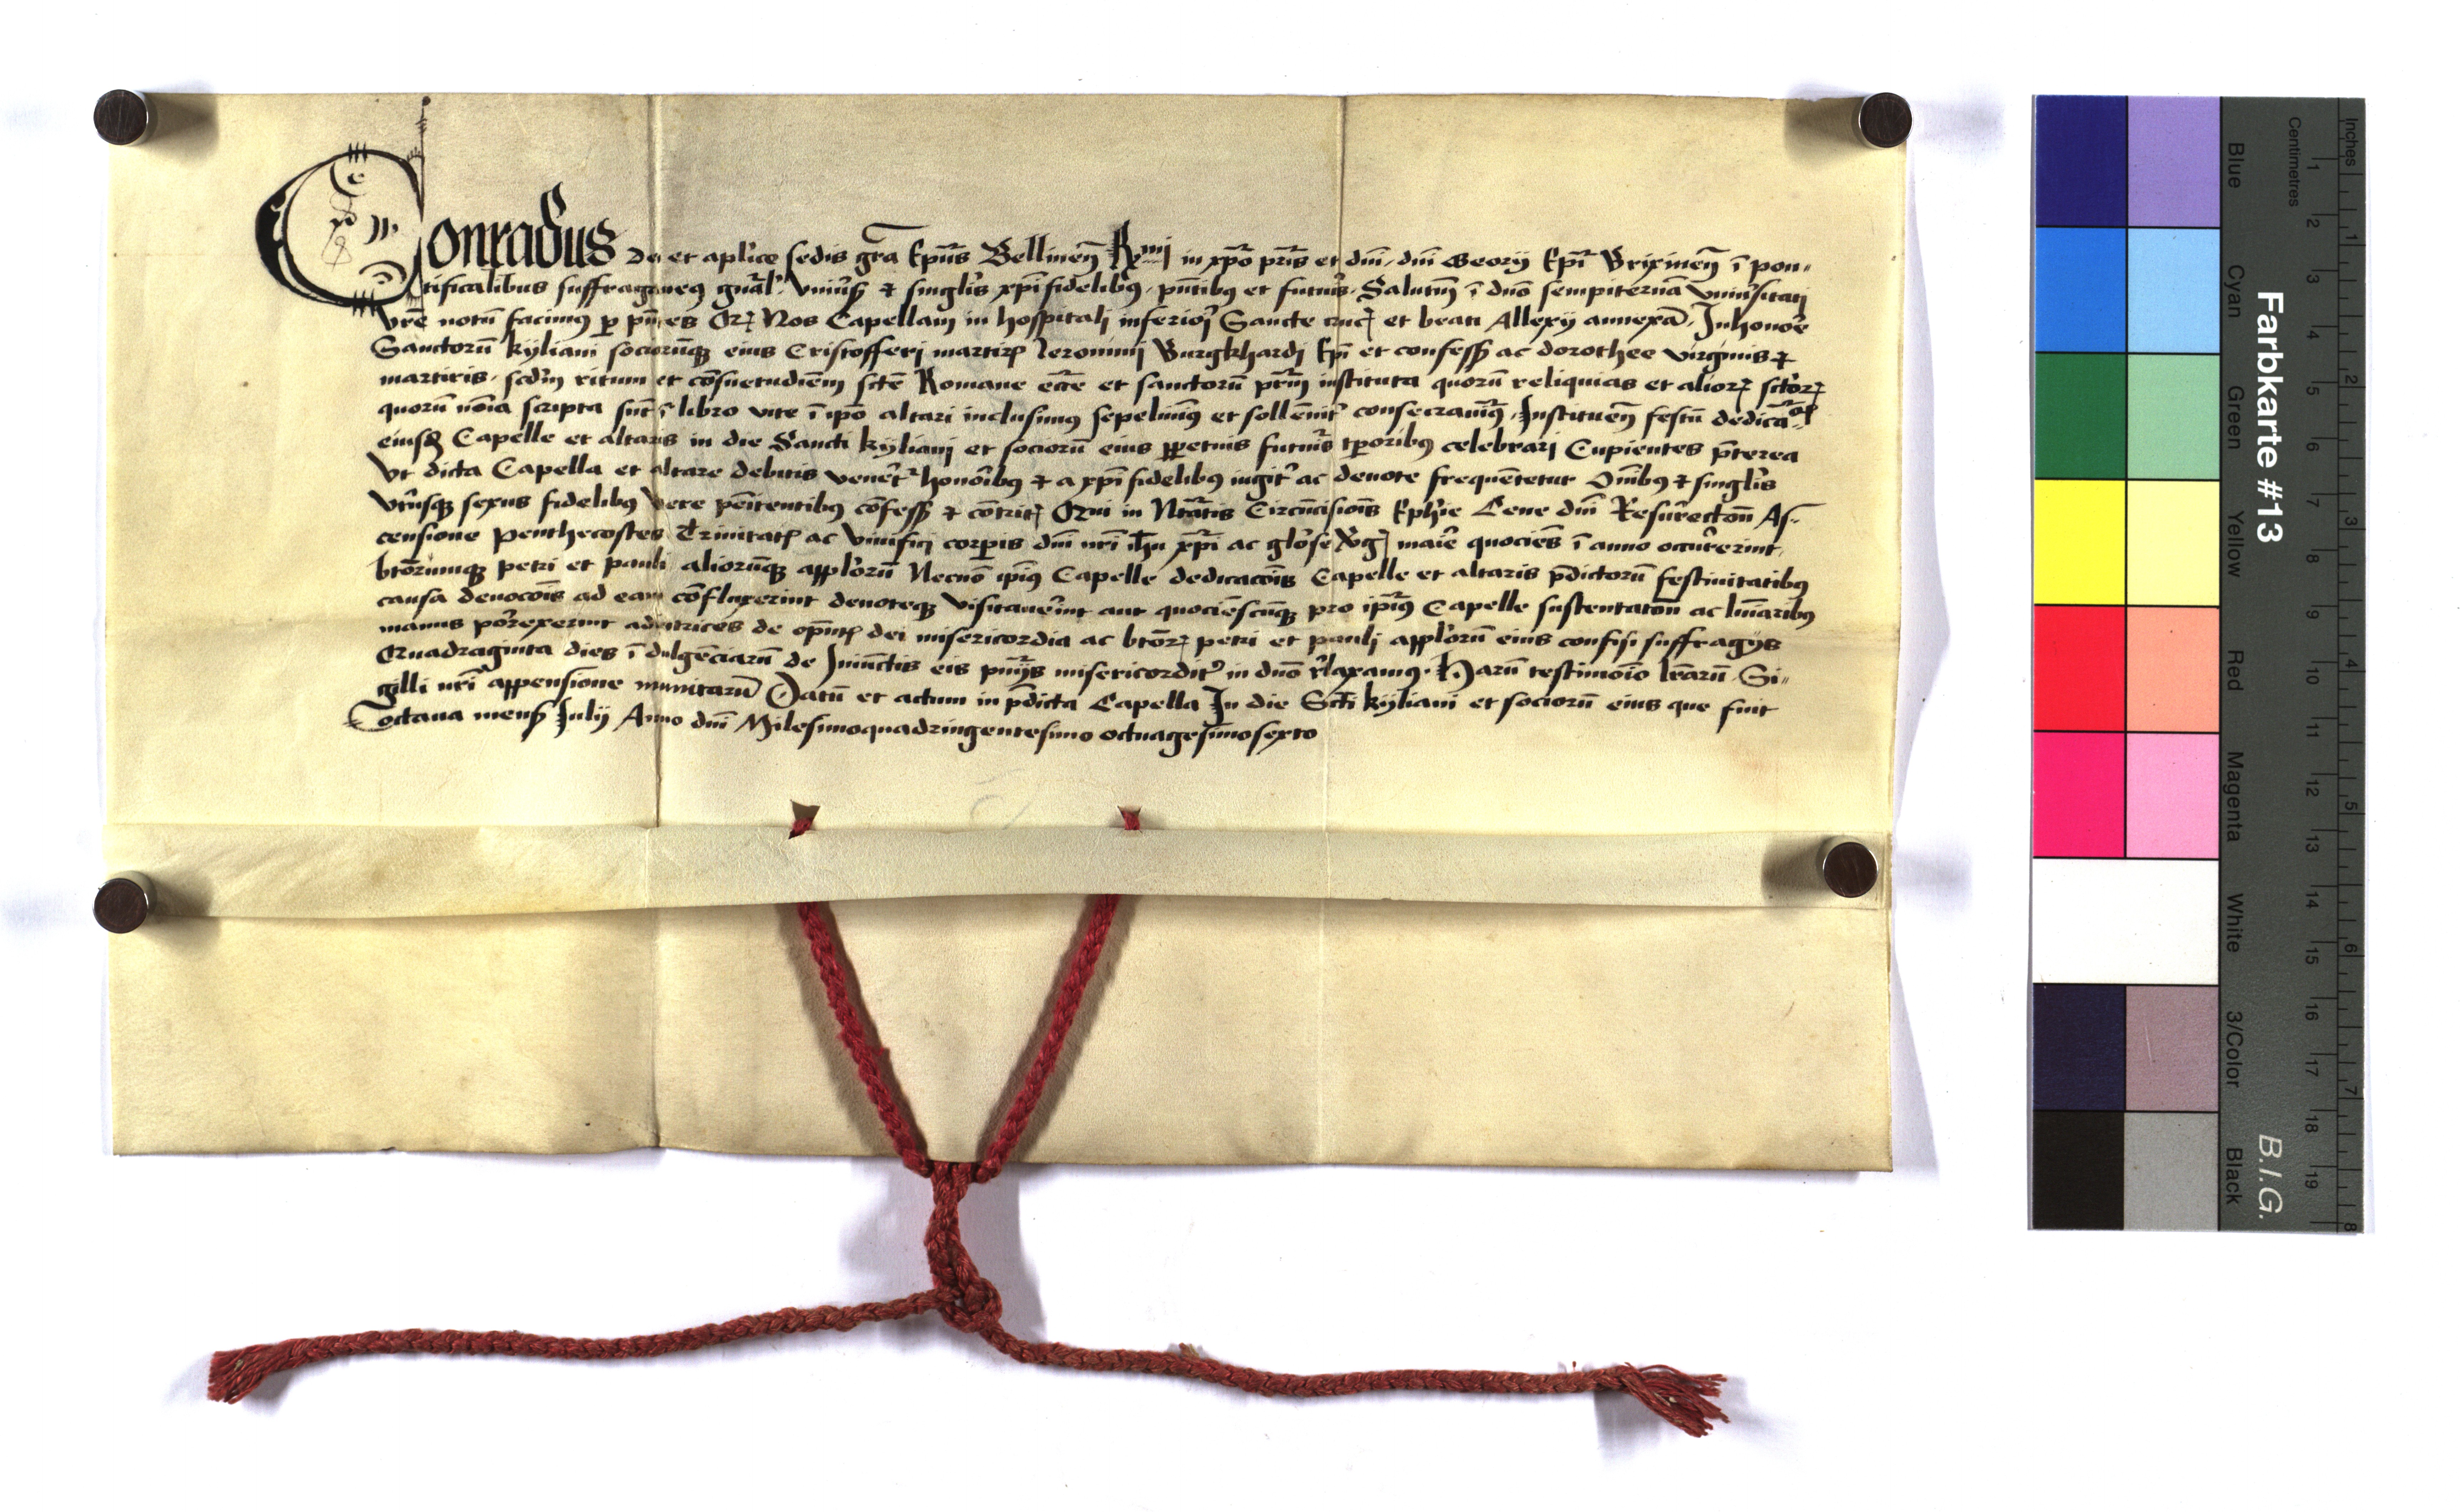 Conradus dei et aplice sedis gra Epus Bellinen Rmi in xpo pris et dni dni Georij Epi Brixinen i pon-
tificalibus suffraganeus gnal Uniuss & singlis xpifidelibus pntibus et futuris Salutem i dno sempiterna vniuersitati
vre notu facimus p pntes Qz Nos Capellam in hospitali inferiori Sancte crucis et beati Allexij annexa In honore
Sanctoru kyliani sociorusque eius Cristofferi martiris Ieronimi Burgkhardi Epi et confess ac dorothee virginis &
martiris scdm ritum et cosuetudiem scte Romane ecce et sanctoru prm instituta quoru reliquias et alioz sctoz
quoru noia scripta sut i libro vite i ipo altari inclusimus sepeliuimus et solleniter consecrauimus Instituen festu dedicacois
eiusd Capelle et altaris in die Sancti kyliani et socioru eius ppetuis futuris tporibus celebrari Cupientes pterea
Vt dicta Capella et altare debitis venert honoribus & a xpifidelibus iugiter ac deuote frequetetur Omibus & singlis
Vtriusque sexus fidelibus vere penitentibus cofess & contritis Qui in Natiuitatis Circucisionis Ephie Cene dni Resurrectou As-
censione Penthecostes Trinitatis ac viuifici corporis dni nri ihu xpi ac gloriose Virginis marie quocies i anno occurrerint
btorumque petri et pauli alioruque applor Necno ipius Capelle dedicacois Capelle et altaris pdictoru festiuitatibus
causa deuocois ad eam cofluxerint deuoteque visitauerint aut quociescuque pro ipius Capelle sustentatou ac luminaribus
manus porrexerint adiutrices de oputis dei misericordia ac btoz petri et pauli applor eius confisi suffragijs
Quadraginta dies i dulgeciaru de Iniunctis eis pnijs misericorditer in dno rlaxamus Haru testimoio lraru Si-
gilli nri appensione munitaru Datu et actum in pdicta Capella In die Scti kyliani et socioru eius que fuit
octaua mens Julij Anno dni Milesimoquadringentesimo octuagesimosexto
Farbkarte #13
B.I.G.
Inches
Centimetres
1 2 3 4 5 6 7 8
1 2 3 4 5 6 7 8 9 10 11 12 13 14 15 16 17 18 19
Blue
Cyan
Green
Yellow
Red
Magenta
White
3/Color
Black